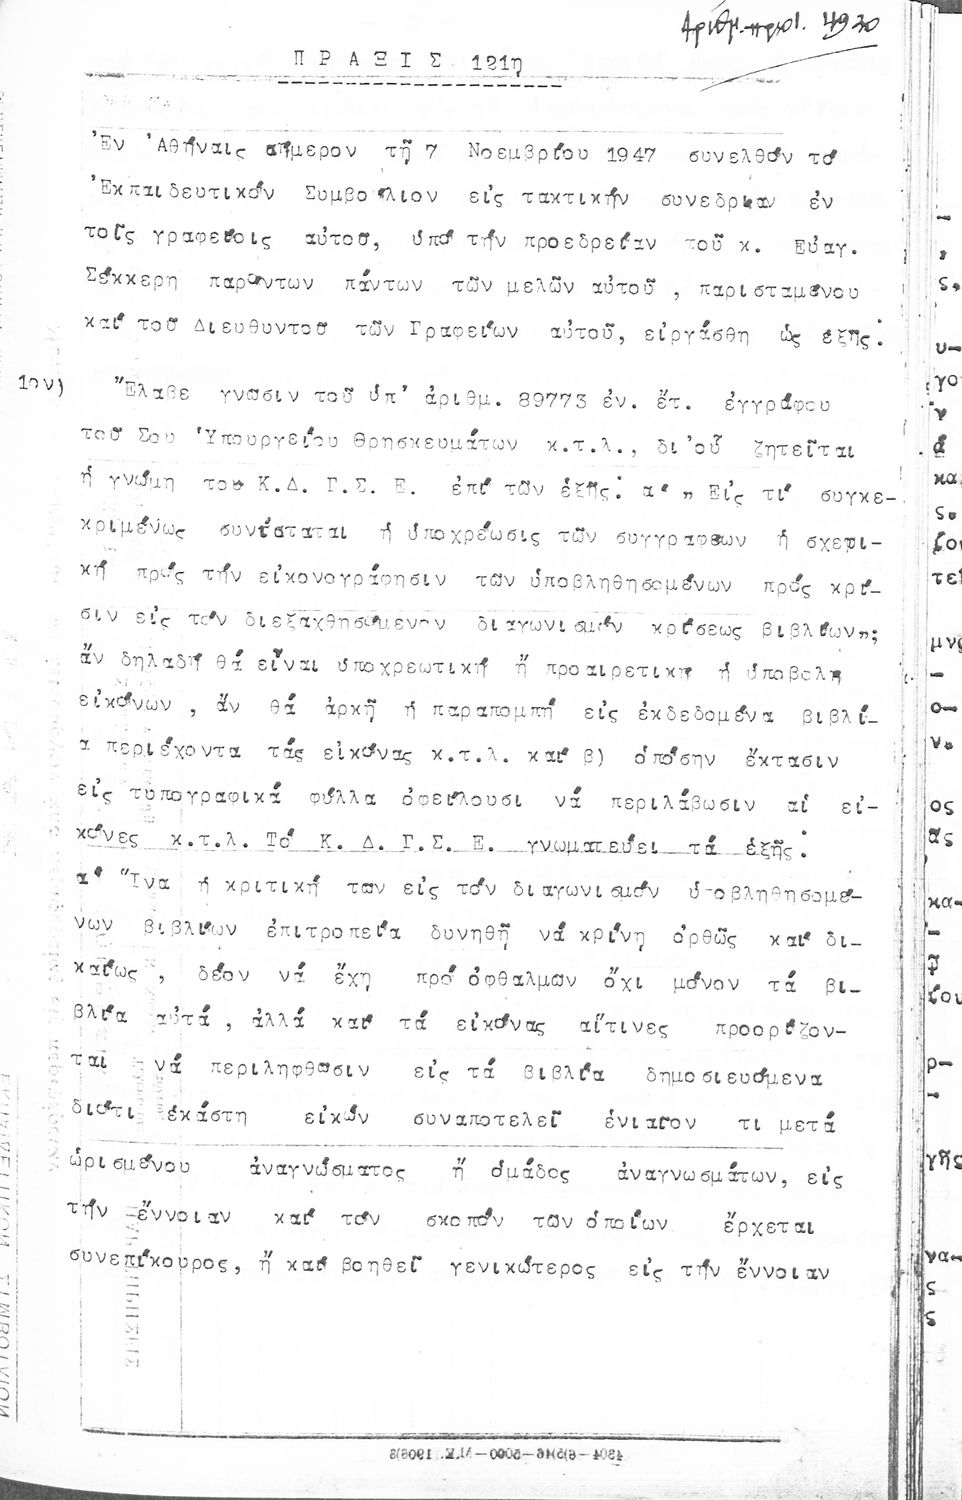 Ἀριθμ. πρωτ. 4920
ΠΡΑΞΙΣ 121η
Ἐν Ἀθήναις σήμερον τῇ 7 Νοεμβρίου 1947 συνελθόν τό
Ἐκπαιδευτικόν Συμβούλιον εἰς τακτικήν συνεδρίαν ἐν
τοῖς γραφείοις αὐτοῦ, ὑπό τήν προεδρείαν τοῦ κ. Εὐαγ.
Σέκκερη παρόντων πάντων τῶν μελῶν αὐτοῦ, παρισταμένου
καί τοῦ Διευθυντοῦ τῶν Γραφείων αὐτοῦ, εἰργάσθη ὡς ἑξῆς:
1ον) Ἔλαβε γνῶσιν τοῦ ὑπ' ἀριθμ. 89773 ἐν. ἔτ. ἐγγράφου
τοῦ Σου Ὑπουργείου Θρησκευμάτων κ.τ.λ., δι'οὗ ζητεῖται
ἡ γνώμη του Κ.Δ. Γ.Σ. Ε. ἐπί τῶν ἑξῆς: α' „ Εἰς τί συγκε-
κριμένως συνίσταται ἡ ὑποχρέωσις τῶν συγγραφέων ἡ σχετι-
κή πρός τήν εἰκονογράφησιν τῶν ὑποβληθησομένων πρός κρί-
σιν εἰς τόν διεξαχθησόμενον διαγωνισμόν κρίσεως βιβλίων„;
ἄν δηλαδή θά εἶναι ὑποχρεωτική ἤ προαιρετική ἡ ὑποβολή
εἰκόνων, ἄν θά ἀρκῇ ἡ παραπομπή εἰς ἐκδεδομένα βιβλί-
α περιέχοντα τάς εἰκόνας κ.τ.λ. καί β) ὁπόσην ἔκτασιν
εἰς τυπογραφικά φύλλα ὀφείλουσι νά περιλάβωσιν αἱ εἰ-
κόνες κ.τ.λ. Τό Κ. Δ. Γ.Σ. Ε. γνωματεύει τά ἑξῆς:
α' Ἵνα ἡ κριτική των εἰς τόν διαγωνισμόν ὑποβληθησομέ-
νων βιβλίων ἐπιτροπεία δυνηθῇ νά κρίνῃ ὀρθῶς καί δι-
καίως, δέον νά ἔχῃ πρό ὀφθαλμῶν ὄχι μόνον τά βι-
βλία αὐτά, ἀλλά καί τά εἰκόνας αἵτινες προορίζον-
ται νά περιληφθῶσιν εἰς τά βιβλία δημοσιευόμενα
διότι ἑκάστη εἰκών συναποτελεῖ ἑνιαῖον τι μετά
ὡρισμένου ἀναγνώσματος ἤ ὁμάδος ἀναγνωσμάτων, εἰς
τήν ἔννοιαν καί τόν σκοπόν τῶν ὁποίων ἔρχεται
συνεπίκουρος, ἤ καί βοηθεῖ γενικώτερος εἰς τήν ἔννοιαν